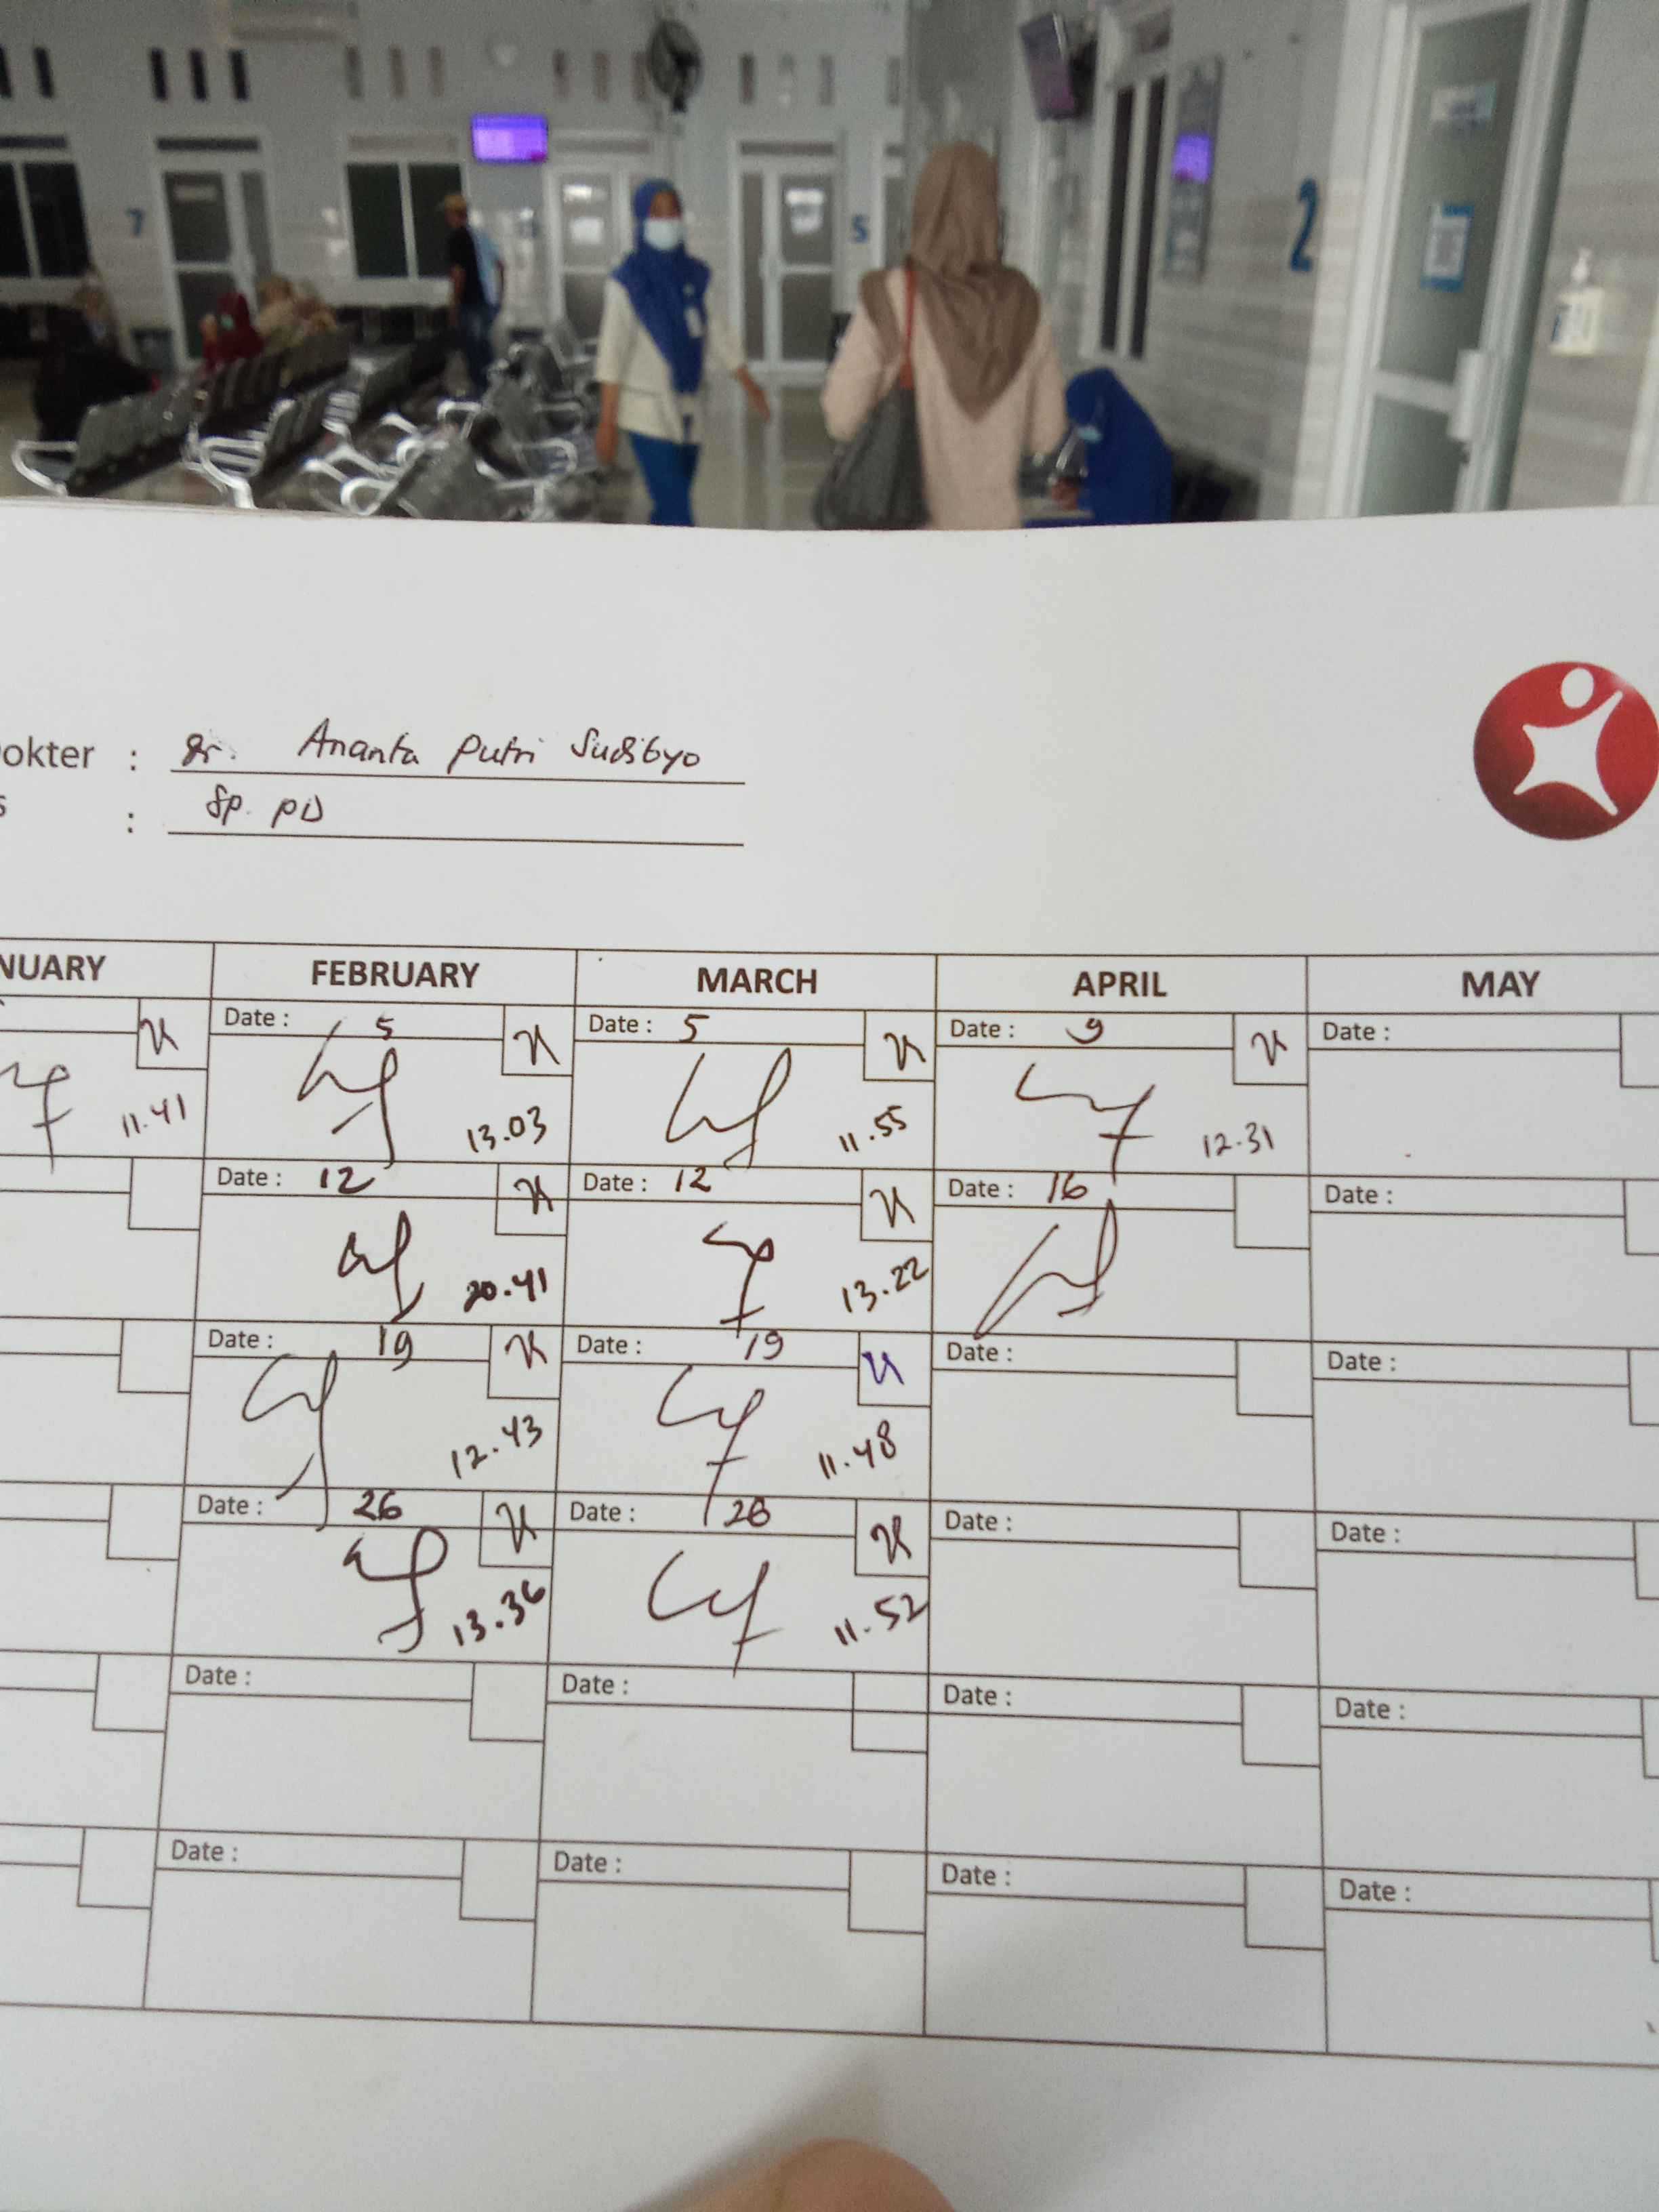 7
5
2
okter : dr. Ananta Putri Sudibyo
s : Sp. PD
NUARY FEBRUARY MARCH APRIL MAY
Date : 5 Date : 5 Date : 9 Date :
11.41 13.03 11.55 12.31
Date : 12 Date : 12 Date : 16 Date :
20.41 13.22
Date : 19 Date : 19 Date : Date :
12.43 11.48
Date : 26 Date : 26 Date : Date :
13.36 11.52
Date : Date : Date : Date :
Date : Date : Date : Date :